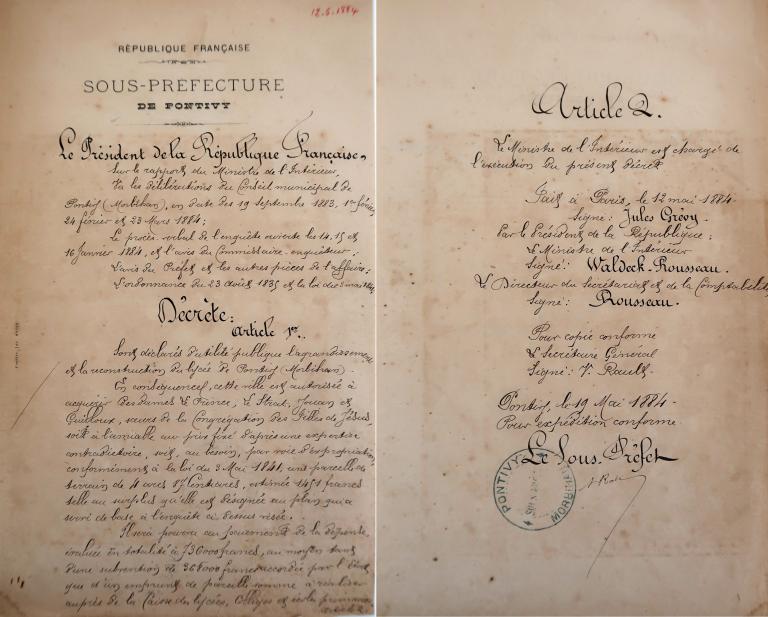 12.5.1884
RÉPUBLIQUE FRANÇAISE
SOUS-PREFECTURE
DE PONTIVY
Le Président de la République Française,
Sur le rapport du Ministre de l'Intérieur,
Vu les délibérations du Conseil municipal de
Pontivy (Morbihan), en date des 19 septembre 1883, 1er février,
24 février et 23 Mars 1884;
Le procès verbal de l'enquête ouverte les 14, 15 et
16 Janvier 1884, et l'avis du Commissaire enquêteur;
L'avis du Préfet et les autres pièces de l'affaire;
L'ordonnance du 23 août 1835 et la loi du 3 mai 1841
Décrète:
Article 1er.
Sont déclarés d'utilité publique l'agrandissement
et la reconstruction du lycée de Pontivy (Morbihan).
En conséquence, cette ville est autorisée à
acquérir des Dames Le Prince, Le Strat, Jouan et
Guilloux, sœurs de la Congrégation des Filles de Jésus,
soit à l'amiable au prix fixé d'après une expertise
contradictoire, soit, au besoin, par voie d'expropriation
conformément à la loi du 3 Mai 1841, une parcelle de
terrain de 4 ares 87 centiares, estimée 1451 francs
telle au surplus qu'elle est désignée au plan qui a
servi de base à l'enquête ci dessus visée.
Il sera pourvu au paiement de la dépense,
évaluée en totalité à 736000 francs, au moyen tant
d'une subvention de 368000 francs accordée par l'État
que d'un emprunt de pareille somme à réaliser
auprès de la Caisse des lycées, Collèges et écoles primaires
Article 2.
Le Ministre de l'Intérieur est chargé de
l'exécution du présent décret
Fait à Paris, le 12 mai 1884
Signé: Jules Grévy.
Par le Président de la République:
Le Ministre de l'Intérieur
Signé: Waldeck-Rousseau.
Le Directeur du Secrétariat et de la Comptabilité
Signé: Rousseau.
Pour copie conforme
Le Secrétaire Général
Signé: V. Rault
Pontivy, le 19 Mai 1884
Pour expédition conforme
Le Sous-Préfet
PONTIVY
MORBIHAN